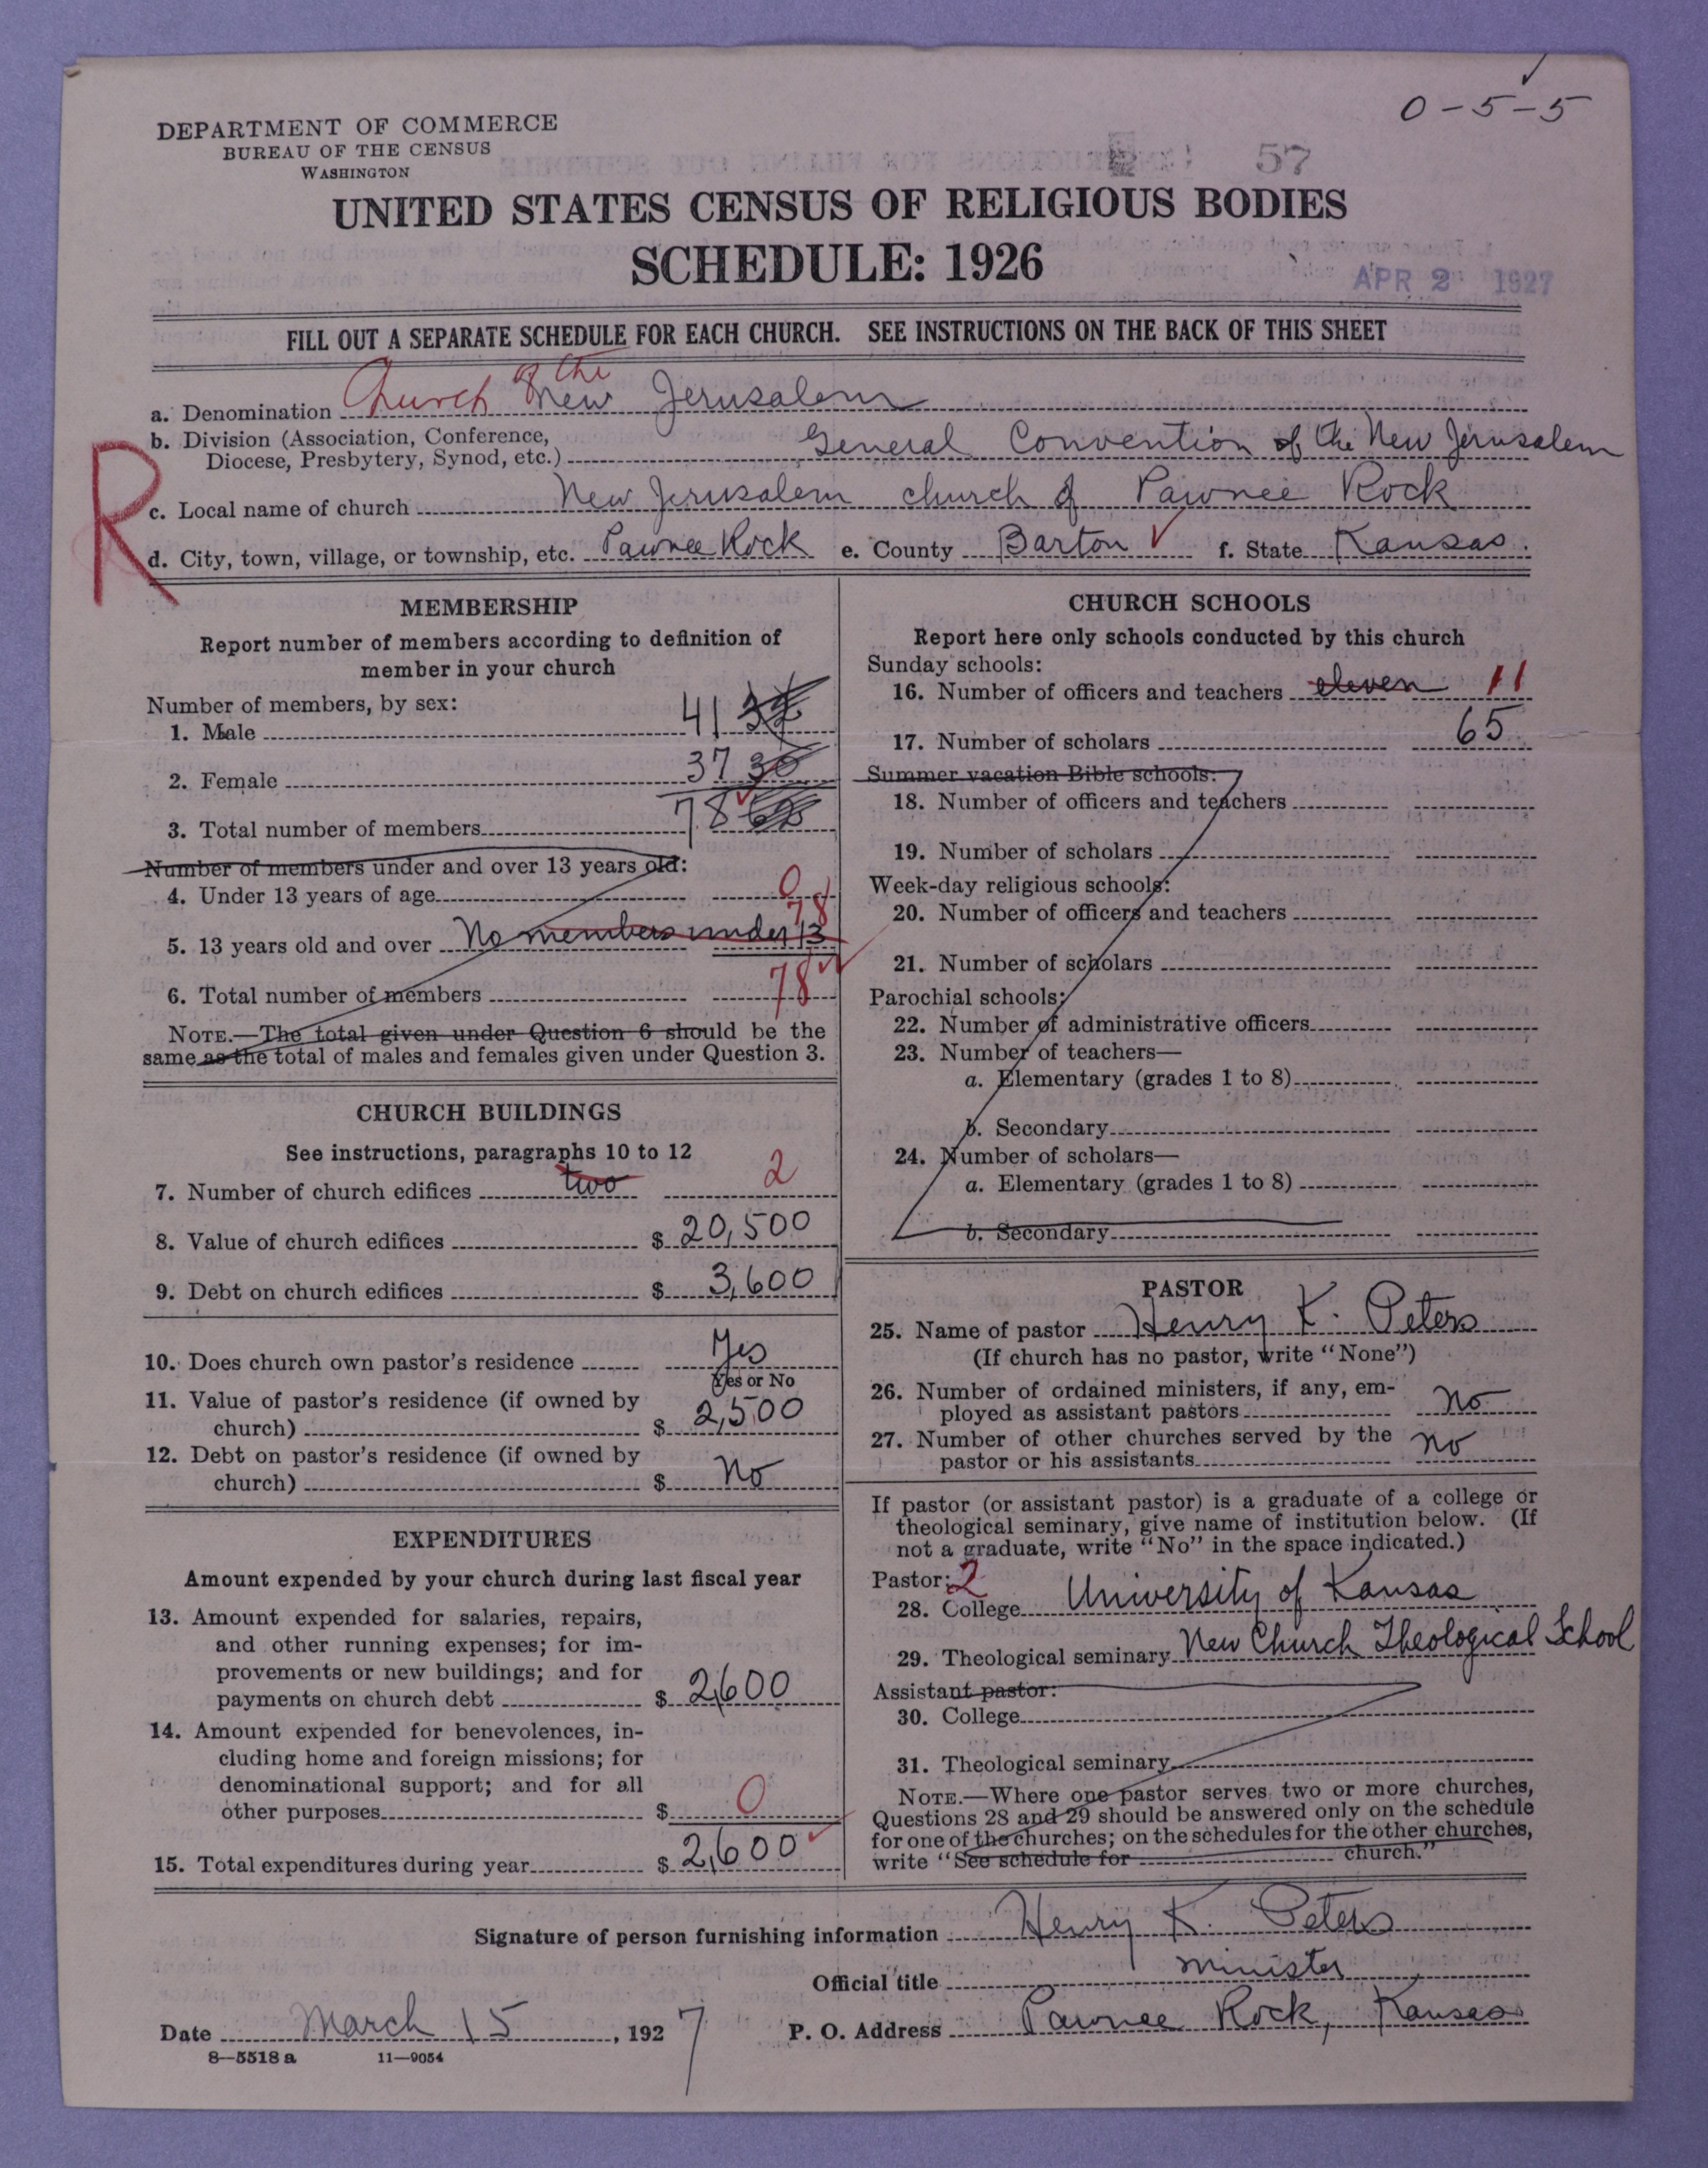 0-5-5
DEPARTMENT OF COMMERCE
BUREAU OF THE CENSUS
WASHINGTON
57
UNITED STATES CENSUS OF RELIGIOUS BODIES
SCHEDULE: 1926
APR 2 1927
FILL OUT A SEPARATE SCHEDULE FOR EACH CHURCH. SEE INSTRUCTIONS ON THE BACK OF THIS SHEET
a. Denomination Church of the New Jerusalem
b. Division (Association, Conference,
Diocese, Presbytery, Synod, etc.) General Convention of the New Jerusalem
R
c. Local name of church New Jerusalem church of Pawnee Rock
d. City, town, village, or township, etc. Pawnee Rock e. County Barton f. State Kansas.
MEMBERSHIP
Report number of members according to definition of
member in your church
Number of members, by sex:
1. Male 41
2. Female 37 30
3. Total number of members 78
Number of members under and over 13 years old:
4. Under 13 years of age 0
5. 13 years old and over No members under 13 78
6. Total number of members 78
NOTE.—The total given under Question 6 should be the
same as the total of males and females given under Question 3.
CHURCH BUILDINGS
See instructions, paragraphs 10 to 12
7. Number of church edifices two 2
8. Value of church edifices $ 20,500
9. Debt on church edifices $ 3,600
10. Does church own pastor's residence Yes
Yes or No
11. Value of pastor's residence (if owned by
church) $ 2,500
12. Debt on pastor's residence (if owned by
church) $ No
EXPENDITURES
Amount expended by your church during last fiscal year
13. Amount expended for salaries, repairs,
and other running expenses; for im-
provements or new buildings; and for
payments on church debt $ 2,600
14. Amount expended for benevolences, in-
cluding home and foreign missions; for
denominational support; and for all
other purposes $ 0
15. Total expenditures during year $ 2,600
CHURCH SCHOOLS
Report here only schools conducted by this church
Sunday schools:
16. Number of officers and teachers eleven 11
17. Number of scholars 65
Summer vacation Bible schools:
18. Number of officers and teachers
19. Number of scholars
Week-day religious schools:
20. Number of officers and teachers
21. Number of scholars
Parochial schools:
22. Number of administrative officers
23. Number of teachers—
a. Elementary (grades 1 to 8)
b. Secondary
24. Number of scholars—
a. Elementary (grades 1 to 8)
b. Secondary
PASTOR
25. Name of pastor Henry K. Peters
(If church has no pastor, write "None")
26. Number of ordained ministers, if any, em-
ployed as assistant pastors no
27. Number of other churches served by the
pastor or his assistants no
If pastor (or assistant pastor) is a graduate of a college or
theological seminary, give name of institution below. (If
not a graduate, write "No" in the space indicated.)
Pastor: 2
28. College University of Kansas
29. Theological seminary New Church Theological School
Assistant pastor:
30. College
31. Theological seminary
NOTE.—Where one pastor serves two or more churches,
Questions 28 and 29 should be answered only on the schedule
for one of the churches; on the schedules for the other churches,
write "See schedule for church."
Signature of person furnishing information Henry K. Peters
Official title minister
Date March 15, 1927 P. O. Address Pawnee Rock, Kansas
8—5518 a 11—9054